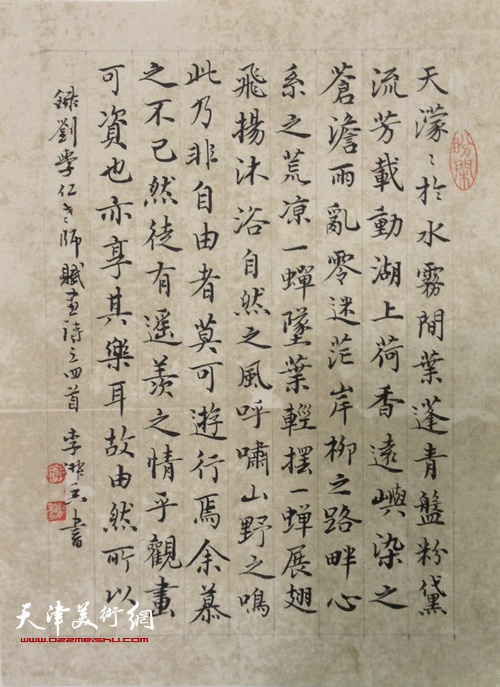 天濛〻於水霧間葉蓬青盤粉黛
流芳載動湖上荷香遠嶼染之
蒼澹雨亂零迷茫岸柳之路畔心
系之荒涼一蟬墜葉輕擺一蟬展翅
飛揚沐浴自然之風呼嘯山野之鳴
此乃非自由者莫可遊行焉余慕
之不已然徒有遥羨之情乎觀畫
可資也亦享其樂耳故由然所以
録劉學仁老師賦畫詩之四首 李 書
天津美術網
www.022meishu.com